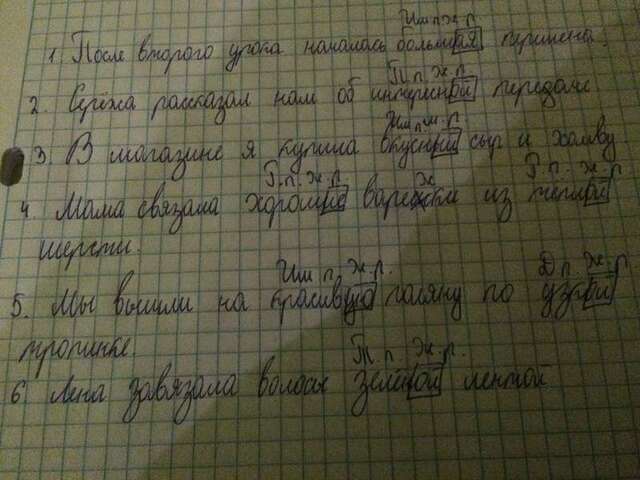 Им п. ж. р.
1. После второго урока началась большая перемена.
П п. ж. р.
2. Серёжа рассказал нам об интересной передаче
Им п. м. р.
3. В магазине я купила вкусный сыр и халву.
Р. п. ж. р. Р. п. ж. р.
4. Мама связала варежки из тёплой
шерсти.
Им п. ж. р. Д п. ж. р.
5. Мы вышли на красивую поляну по узкой
тропинке.
Т. п. ж. р.
6. Лена завязала волосы зелёной лентой